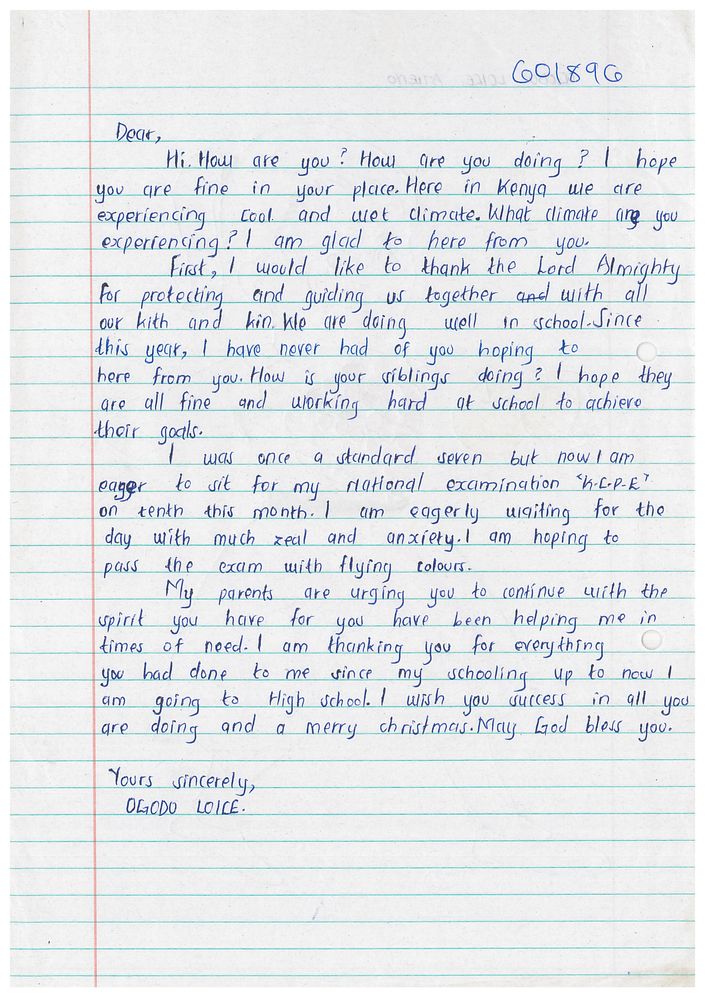 601896
Dear,
Hi. How are you? How are you doing? I hope
you are fine in your place. Here in Kenya we are
experiencing cool and wet climate. What climate are you
experiencing? I am glad to here from you.
First, I would like to thank the Lord Almighty
for protecting and guiding us together and with all
our kith and kin. We are doing well in school. Since
this year, I have never had of you hoping to
here from you. How is your siblings doing? I hope they
are all fine and working hard at school to achieve
their goals.
I was once a standard seven but now I am
eager to sit for my National examination "K.C.P.E"
on tenth this month. I am eagerly waiting for the
day with much zeal and anxiety. I am hoping to
pass the exam with flying colours.
My parents are urging you to continue with the
spirit you have for you have been helping me in
times of need. I am thanking you for everything
you had done to me since my schooling up to now I
am going to High school. I wish you success in all you
are doing and a merry christmas. May God bless you.
Yours sincerely,
OGODO LOICE.